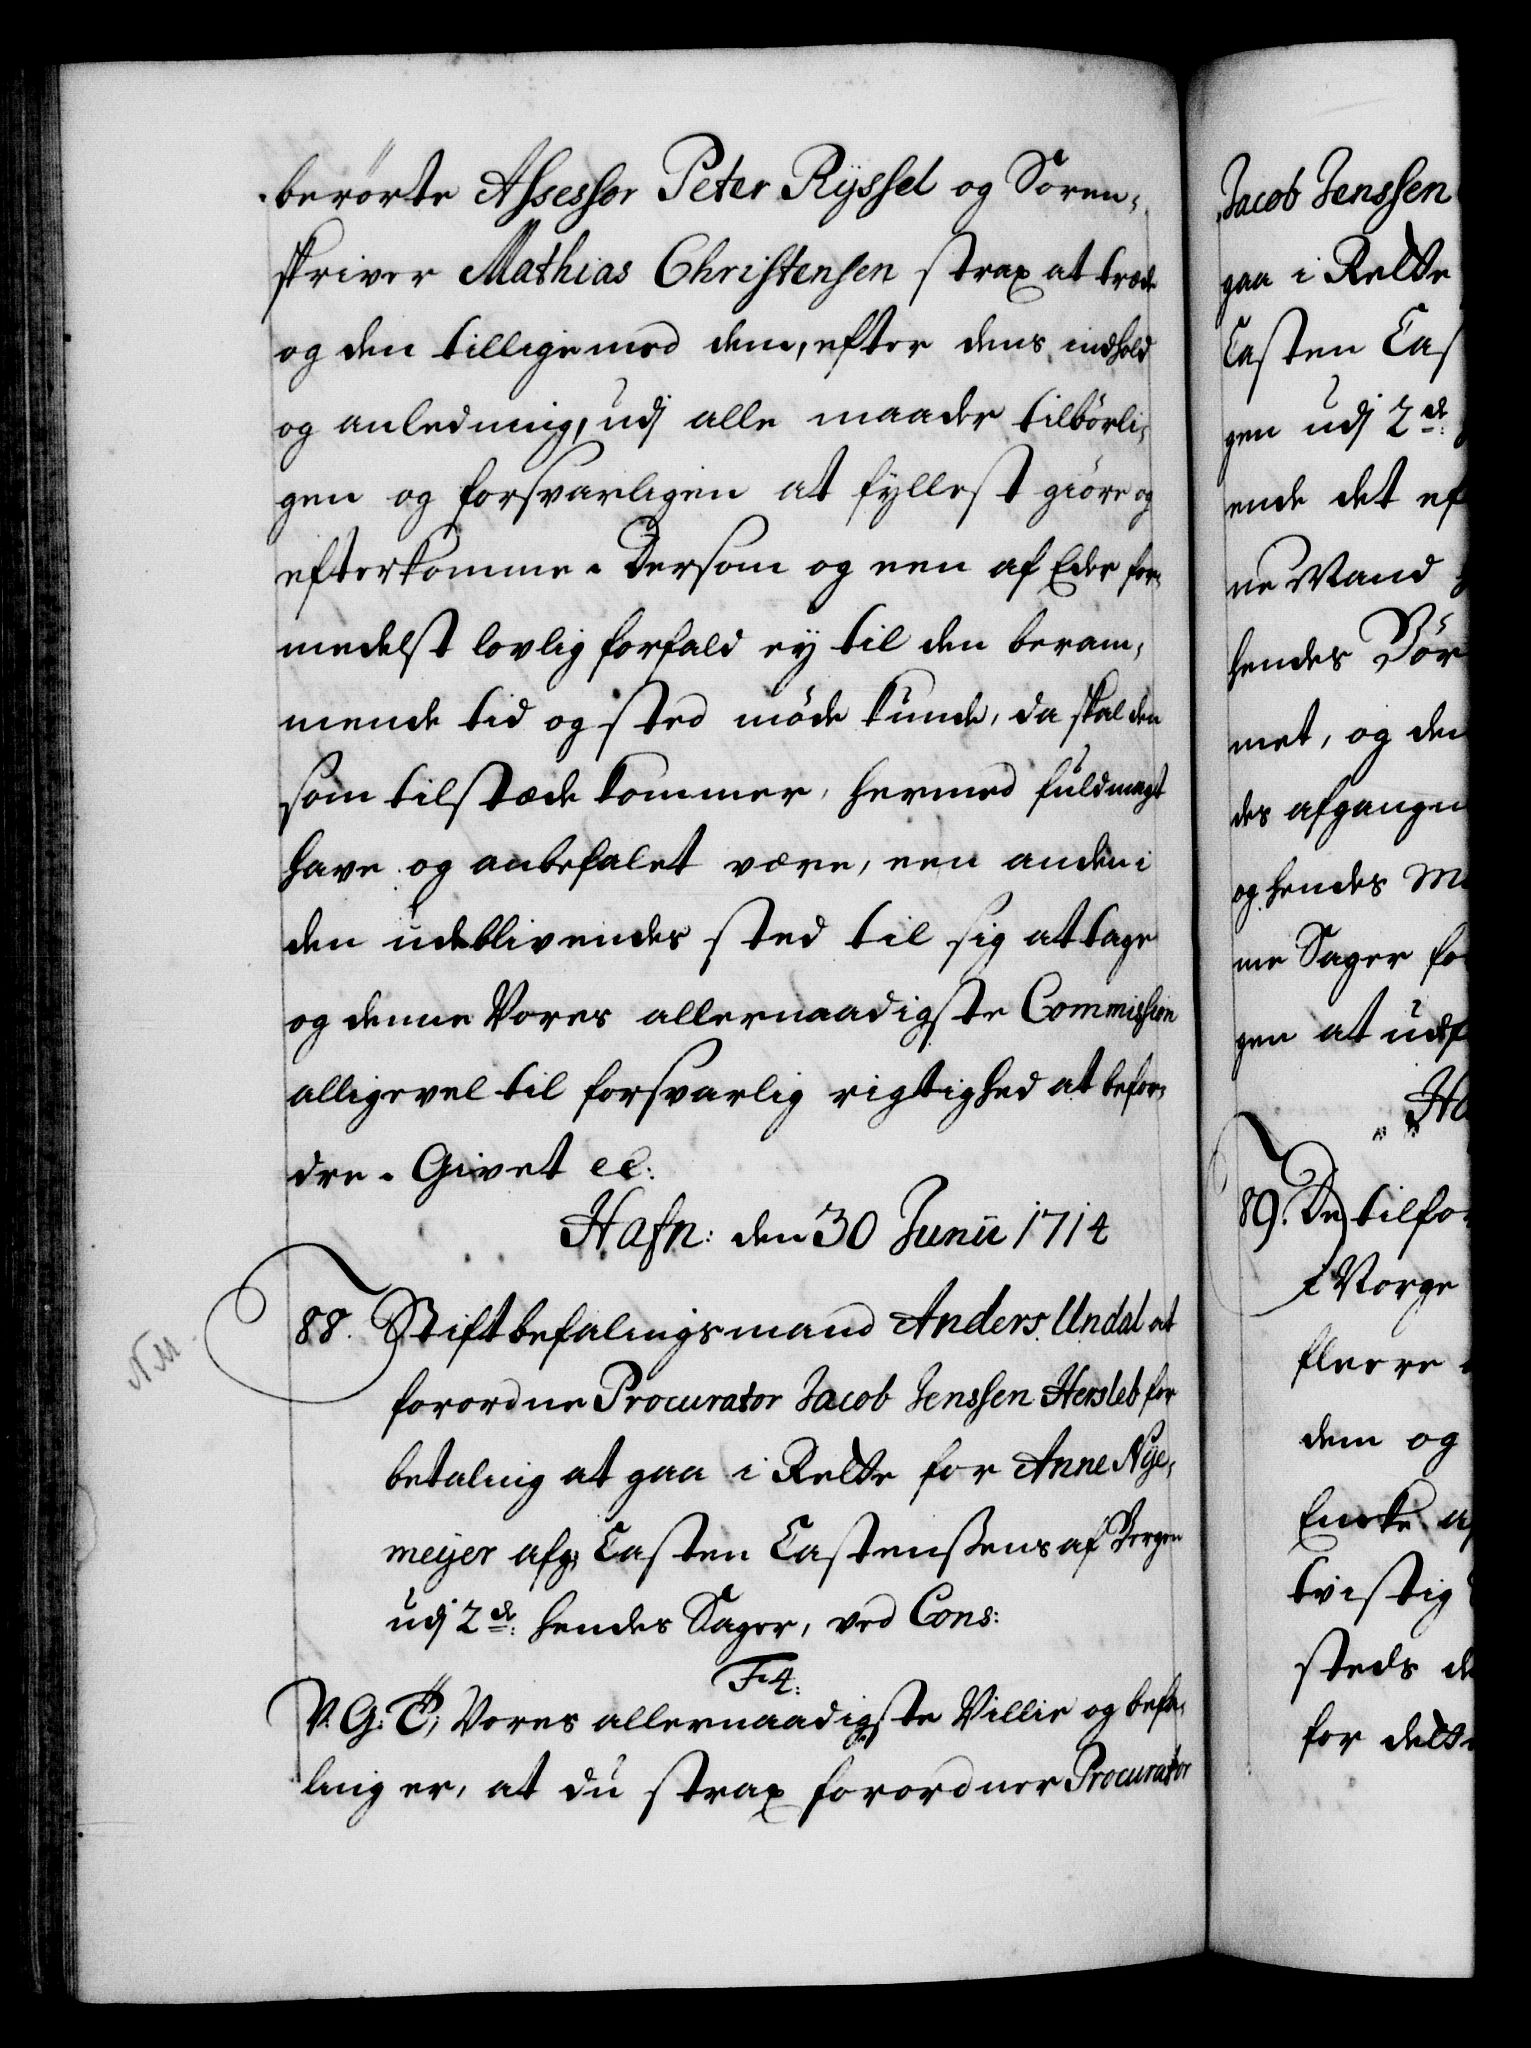 berørte Assessor Peter Ryssel og Soren-
skriver Mathias Christensen strax at træde
og den tilligemed dem, efter dens indhold
og anledning, udj alle maader tilbörli-
gen og forsvarligen at fyllest giöre og
efterkomme. Dersom og een af Eder for-
medelst lovlig forfald ey til den beram-
mende tid og sted möde kunde, da skal den
som tilstæde kommer, hermed fuldmagt
have og anbefalet være, een anden i
den udeblivendes sted til sig at tage
og denne Vores allernaadigste Commission
alligevel til forsvarlig rigtighed at befor-
dre. Givet etc:
Hafn: den 30 Junii 1714
88. Stiftbefalingsmand Anders Undal at
forordne Procurator Jacob Jenssen Hersleb for
betaling at gaa i Rette for Anne Nye-
meyer afg: Casten Castenssens af Bergen
udj 2de: hendes Sager, ved Cons:
F4:
V. G: T; Vores allernaadigste Villie og befa-
ling er, at du strax forordner Procurator
Jacob Jenssen
gaa i Rette
Casten Cas
gen udj 2de:
ende det ef
ne Mand
hendes Bör
met, og den
des afgangn
og hendes M
me Sager fo
gen at udf
Ha
89. De tilfo
i Norge
fleere
dem og
Encke a
tvistig
steds de
for dette
NM